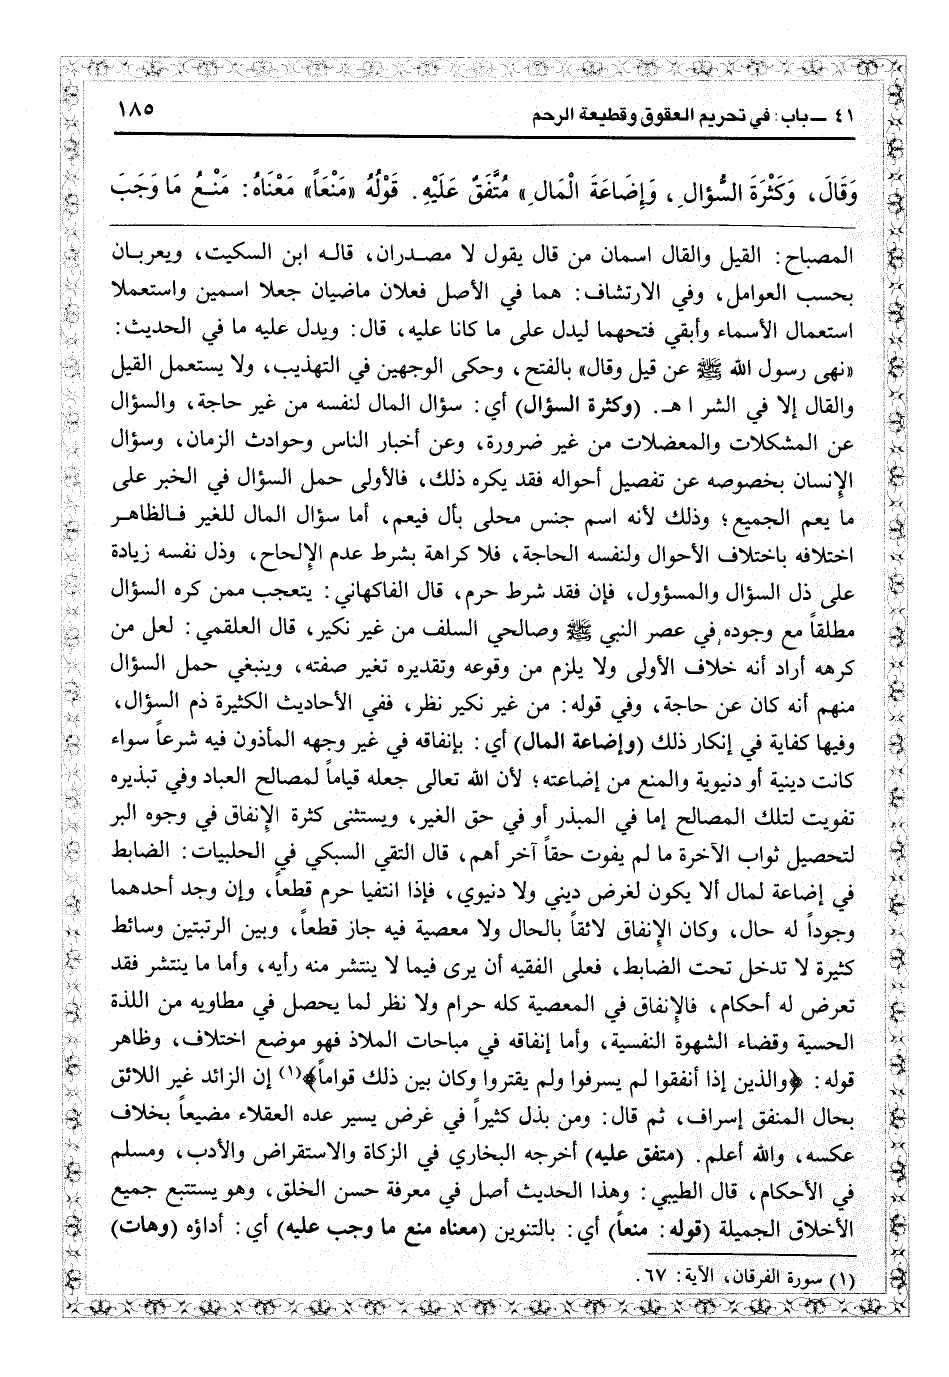 ٤١ ــ باب: في تحريم العقوق وقطيعة الرحم
١٨٥
وَقَالَ، وَكَثْرَةَ السُّؤَالِ، وَإِضَاعَةَ الْمَالِ» مُتَّفَقٌ عَلَيْهِ. قَوْلُهُ «مَنْعَاً» مَعْنَاهُ: مَنْعُ مَا وَجَبَ
المصباح: القيل والقال اسمان من قال يقول لا مصدران، قاله ابن السكيت، ويعربان
بحسب العوامل، وفي الارتشاف: هما في الأصل فعلان ماضيان جعلا اسمين واستعملا
استعمال الأسماء وأبقي فتحهما ليدل على ما كانا عليه، قال: ويدل عليه ما في الحديث:
«نهى رسول الله ﷺ عن قيل وقال» بالفتح، وحكى الوجهين في التهذيب، ولا يستعمل القيل
والقال إلا في الشر اهـ. (وكثرة السؤال) أي: سؤال المال لنفسه من غير حاجة، والسؤال
عن المشكلات والمعضلات من غير ضرورة، وعن أخبار الناس وحوادث الزمان، وسؤال
الإِنسان بخصوصه عن تفصيل أحواله فقد يكره ذلك، فالأولى حمل السؤال في الخبر على
ما يعم الجميع؛ وذلك لأنه اسم جنس محلى بأل فيعم، أما سؤال المال للغير فالظاهر
اختلافه باختلاف الأحوال ولنفسه الحاجة، فلا كراهة بشرط عدم الإِلحاح، وذل نفسه زيادة
على ذل السؤال والمسؤول، فإن فقد شرط حرم، قال الفاكهاني: يتعجب ممن كره السؤال
مطلقاً مع وجوده في عصر النبي ﷺ وصالحي السلف من غير نكير، قال العلقمي: لعل من
كرهه أراد أنه خلاف الأولى ولا يلزم من وقوعه وتقديره تغير صفته، وينبغي حمل السؤال
منهم أنه كان عن حاجة، وفي قوله: من غير نكير نظر، ففي الأحاديث الكثيرة ذم السؤال،
وفيها كفاية في إنكار ذلك (وإضاعة المال) أي: بإنفاقه في غير وجهه المأذون فيه شرعاً سواء
كانت دينية أو دنيوية والمنع من إضاعته؛ لأن الله تعالى جعله قياماً لمصالح العباد وفي تبذيره
تفويت لتلك المصالح إما في المبذر أو في حق الغير، ويستثنى كثرة الإِنفاق في وجوه البر
لتحصيل ثواب الآخرة ما لم يفوت حقاً آخر أهم، قال التقي السبكي في الحلبيات: الضابط
في إضاعة لمال ألا يكون لغرض ديني ولا دنيوي، فإذا انتفيا حرم قطعاً، وإن وجد أحدهما
وجوداً له حال، وكان الإِنفاق لائقاً بالحال ولا معصية فيه جاز قطعاً، وبين الرتبتين وسائط
كثيرة لا تدخل تحت الضابط، فعلى الفقيه أن يرى فيما لا ينتشر منه رأيه، وأما ما ينتشر فقد
تعرض له أحكام، فالإِنفاق في المعصية كله حرام ولا نظر لما يحصل في مطاويه من اللذة
الحسية وقضاء الشهوة النفسية، وأما إنفاقه في مباحات الملاذ فهو موضع اختلاف، وظاهر
قوله: ﴿والذين إذا أنفقوا لم يسرفوا ولم يقتروا وكان بين ذلك قواماً﴾(١) إن الزائد غير اللائق
بحال المنفق إسراف، ثم قال: ومن بذل كثيراً في غرض يسير عده العقلاء مضيعاً بخلاف
عكسه، والله أعلم. (متفق عليه) أخرجه البخاري في الزكاة والاستقراض والأدب، ومسلم
في الأحكام، قال الطيبي: وهذا الحديث أصل في معرفة حسن الخلق، وهو يستتبع جميع
الأخلاق الجميلة (قوله: منعاً) أي: بالتنوين (معناه منع ما وجب عليه) أي: أداؤه (وهات)
(١) سورة الفرقان، الآية: ٦٧.